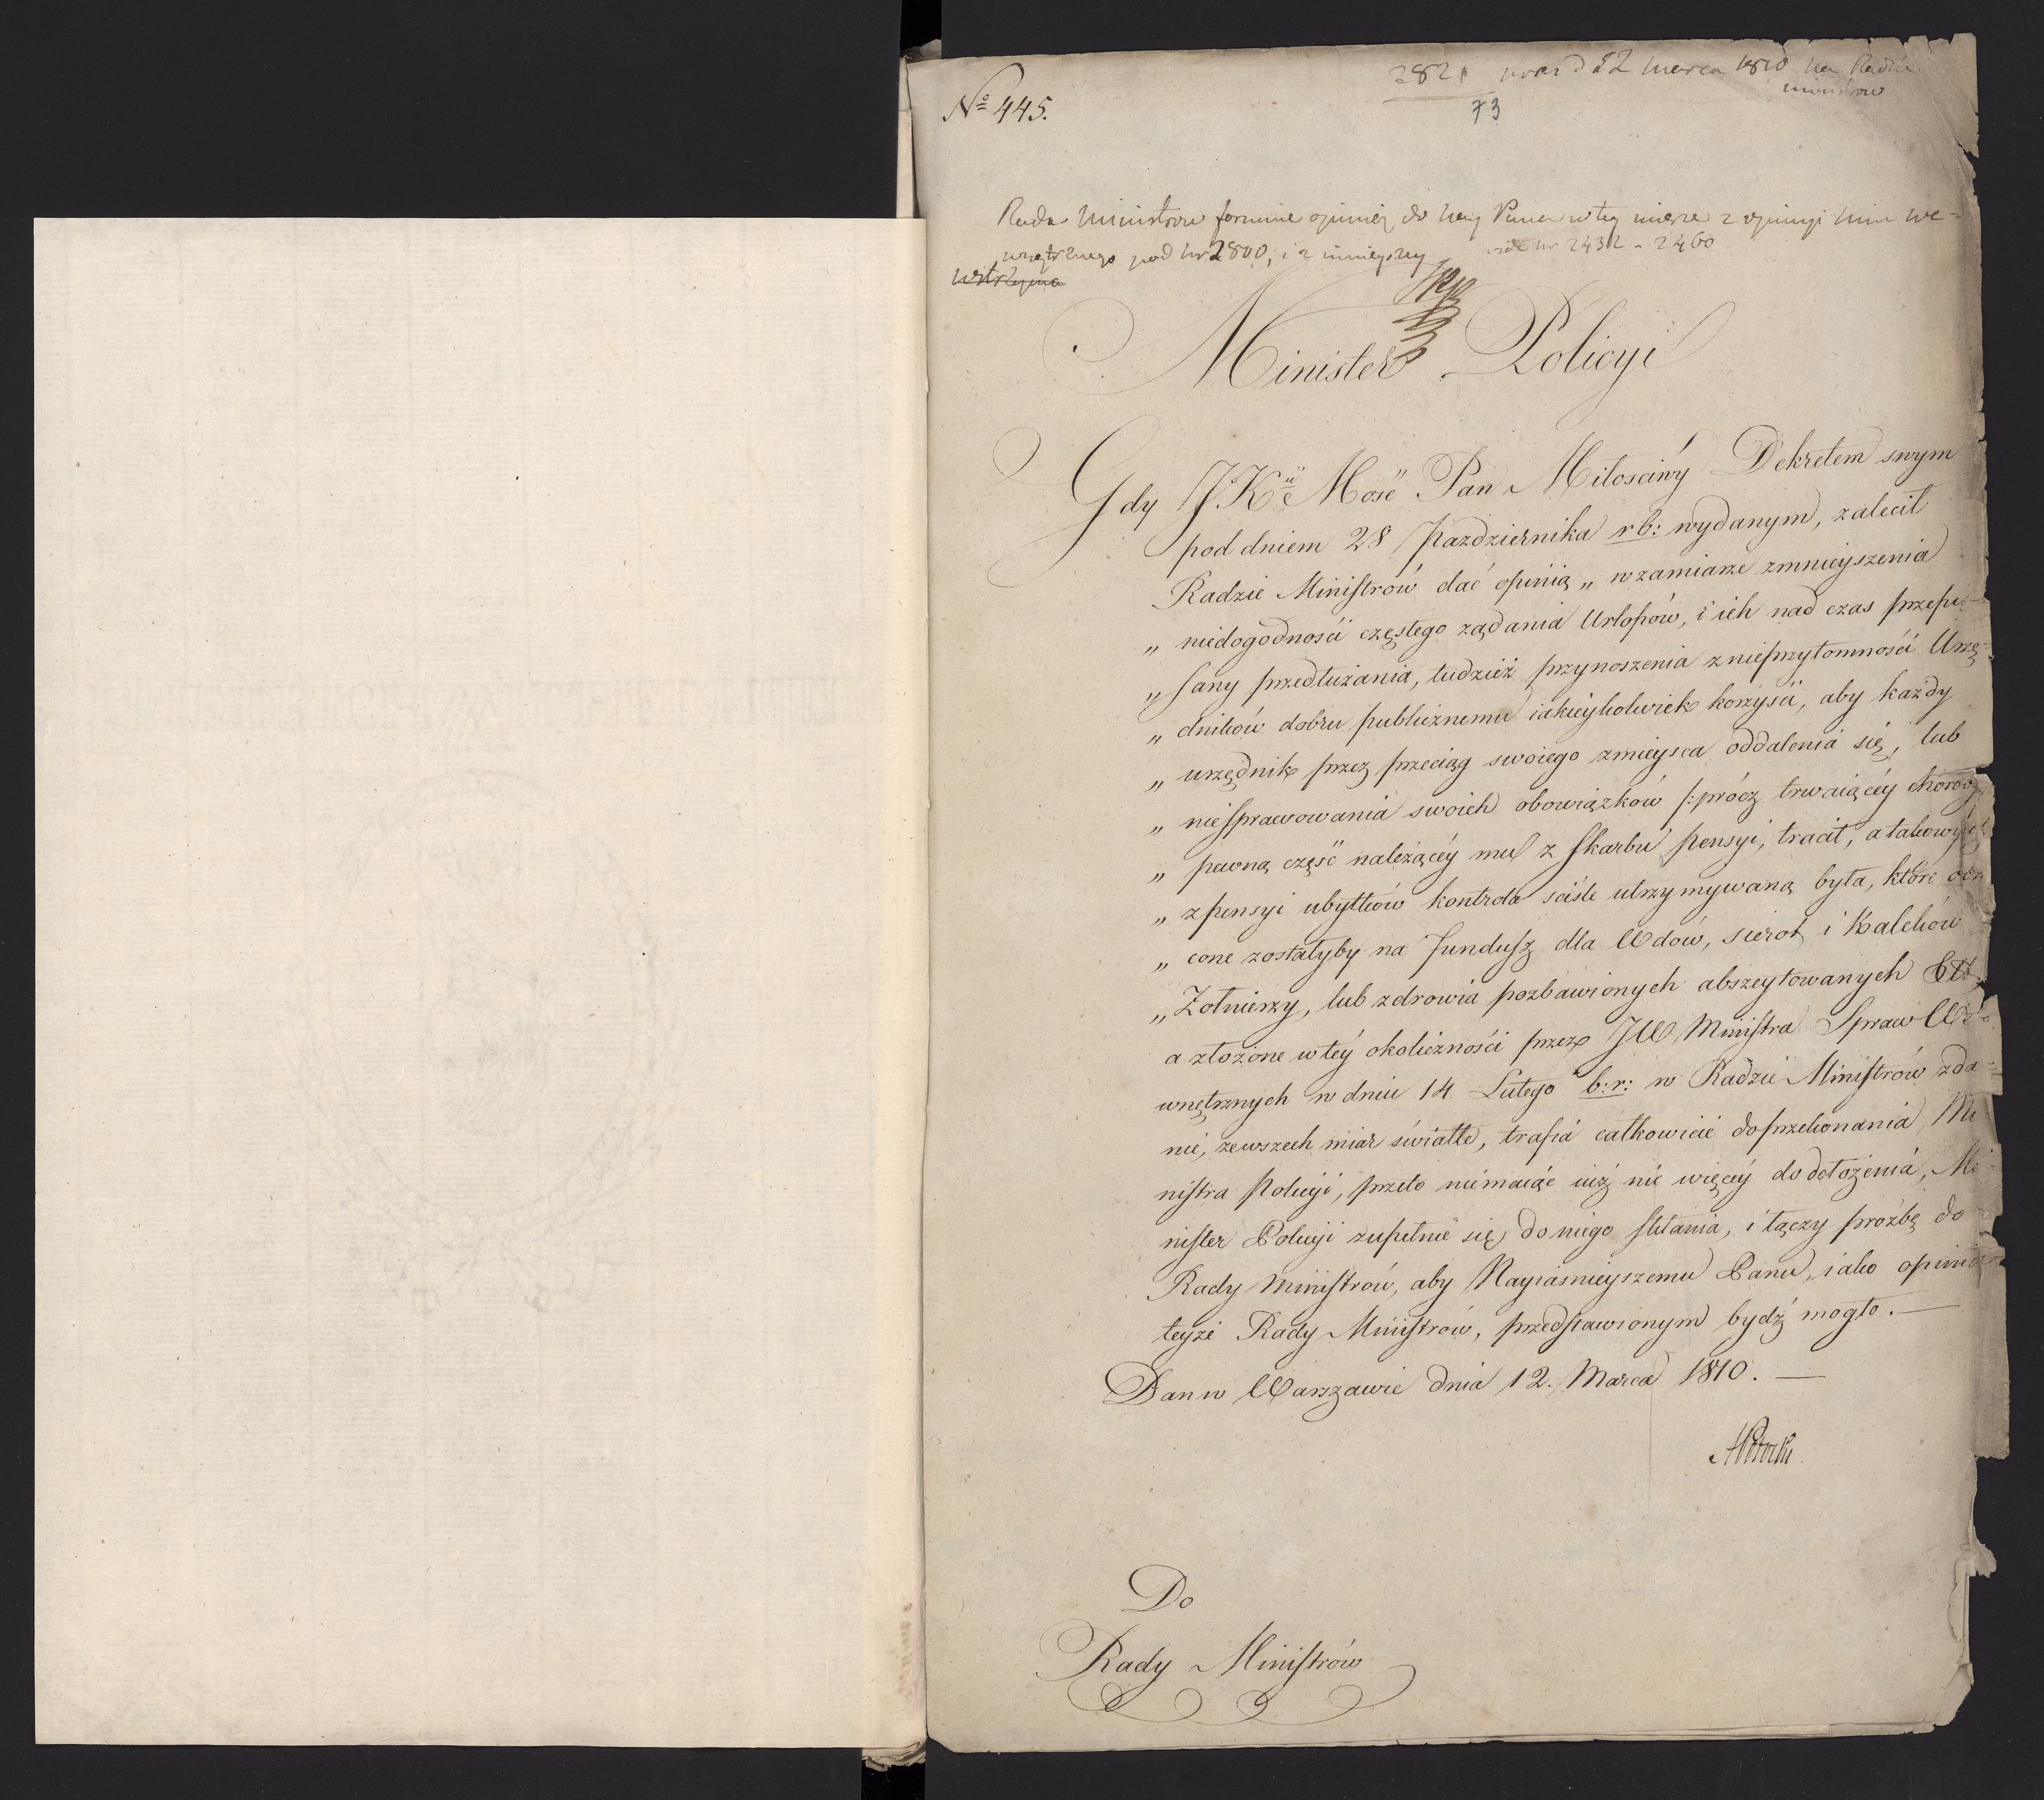 No 445.
2821 d 12 marca 1810 na Radzie
ministrow
73
Rada Ministrow formuie opinię do Nay Pana w tey mierze z opinyi Min We=
wnętrznego pod nr 2800, i z ninieyszey vide nr 2432 - 2460
wstrzyma
Minister Policyi
Gdy J. K. Mość Pan Miłosciwy Dekretem swym
pod dniem 28 Pazdziernika r b: wydanym, zalecił
Radzie Ministrów dać opinią „ w zamiarze zmnieyszenia
„ niedogodnosci częstego ządania Urlopów, i ich nad czas przepi-
„ sany przedłużania, tudzież przynoszenia z nieprzytomnosći Urzę=
„ dników dobru publicznemu iakieykolwiek korzysci, aby każdy
„ urzędnik przez przeciąg swoiego z mieysca oddalenia się, lub
„ niesprawowania swoich obowiązków /: prócz trwaiącéy choroby
„ pewną część należącéy mu z Skarbu pensyi, tracił, a takowych
„ z pensyi ubytków kontrola sciśle utrzymywaną była, które obr
„ cone zostałyby na Fundusz dla Wdów, sierot i Kaleków
„ Zołnierzy, lub zdrowia pozbawionych abszeytowanych Ett
a złożone w téy okolicznosći przez JW. Ministra Spraw We=
wnętrznych w dniu 14 Lutego b: r: w Radzie Ministrów zda=
nie, ze wszech miar światłe, trafia całkowicie do przekonania Mi
nistra Policyi, przeto niemaiąc iuż nic więcéy do dołożenia, Mi=
nister Policyi zupełnie się do niego skłania, i łączy prozbę do
Rady Ministrów, aby Nayiasnieyszemu Panu, iako opinia
teyże Rady Ministrów, przedstawionym bydź mogło. —
Dan w Warszawie dnia 12. Marca 1810. —
APotocki
Do
Rady Ministrów